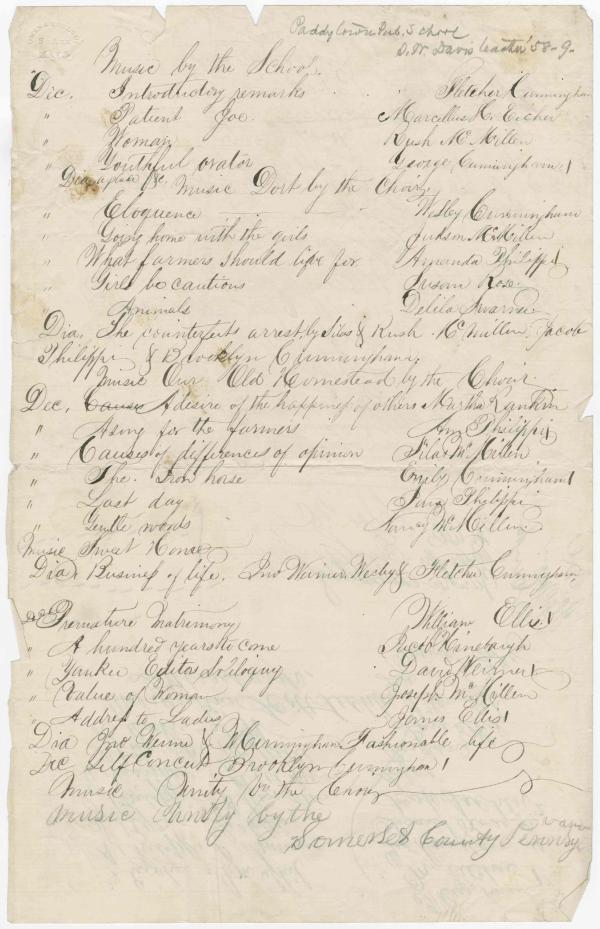 Paddytown Pub. School
D. W Davis teacher '58-9-
Music by the School.
Dic. Introductory remarks Fletcher Cunningham
" Patient Joe. Marcellus H. Eicher
" Woman Rush McMillen
" Youthful orator George Cunningham
Music Dort by the Choir
" Eloquence Wesley Cunningham
" Going home with the girls Jackson McMillen
" What farmers should live for Amanda Philippi
" Girls be cautious Susan Rose
Animals Delila
Dia. The counterfeits arrest by Silas & Rush McMillen, Jacob
Philippi & Brooklyn Cunningham
Music Our Old Homestead by the Choir
Dec. A desire of the happiness of others Martha Rankin
" A song for the farmers Ann Philippi
" Causes of differences of opinion Silas McMillen
" The Iron horse Emily Cunningham
" Last day Philippi
" Gentle words Nancy McMillen
Music Sweet Home
Dia. Business of life. Jno Weimer Wesley & Fletcher Cunningham
Premature Matrimony William Ellis
" A hundred years to come Jacob Hinebaugh
" Yankee Editors Soliloquy David Weimer
" Value of Woman Joseph McMillen
" Address to Ladies James Ellis
Dia Jno Weimer & W Cunningham Fashionable life
Dec Self Conceit Brooklyn Cunningham
Music Unity by the Choir
Music Unity by the
Somerset County Pennsylvania